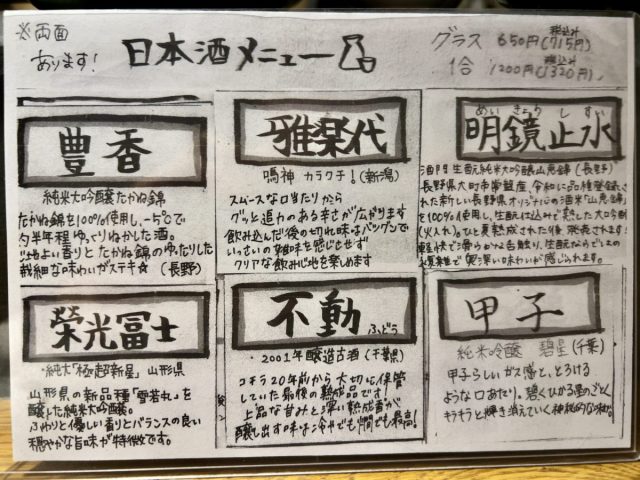 ※両面
あります!
日本酒メニュー
グラス 650円(税込み715円)
1合 1200円(税込み1320円)
豊香
純米大吟醸たかね錦
たかね錦を100%使用し、-5℃で
約半年程ゆっくりねかした酒。
心地よい香りとたかね錦のゆったりした
繊細な味わいがステキ☆ (長野)
雅楽代
鳴神 カラクチ!(新潟)
スムースな口当たりから
グッと迫力のある辛さが広がります
飲み込んだ後の切れ味はバツグンで
いっさいの雑味を感じさせず
クリアな飲み心地を楽しめます
めいきょうしすい
明鏡止水
酒門 生酛純米大吟醸山恵錦(長野)
長野県大町市常盤産、令和に品種登録さ
れた新しい長野県オリジナルの酒米「山恵錦」
を100%使用し、生酛仕込みで醸した大吟醸
(火入れ)。ひと夏熟成された後発売されます!
軽快で滑らかな舌触り、生酛ならではの
複雑で奥深い味わいが感じられます。
榮光冨士
・純大「極超新星」山形県
山形県の新品種「雪若丸」を
醸した純米大吟醸。
ふわりと優しい香りとバランスの良い
穏やかな旨味が特徴です。
不動 ふどう
・2001年醸造古酒(千葉県)
コチラ20年前から大切に保管
していた最後の熟成品です!
上品な甘みと深い熟成香が
醸し出す味は冷やでも燗でも最高!
甲子
純米吟醸 碧星(千葉)
甲子らしいガス感と、とろける
ような口あたり。碧くひかる星のごとく
キラキラと輝き消えていく神秘的なお酒。